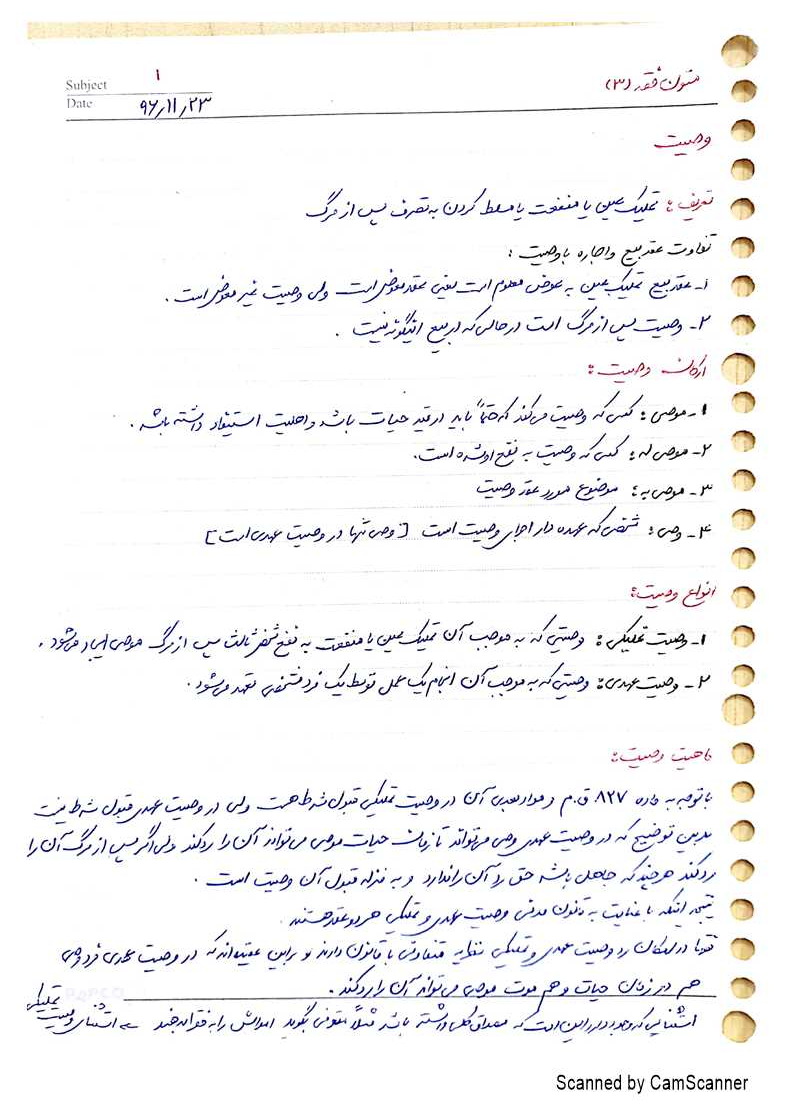 Subject ۱
Date ۹۶/۱۱/۲۳
متون فقه (۳)
وصیت
تعریف: تملیک عین یا منفعت یا مسلط کردن به تصرف پس از مرگ
تفاوت عقد بیع و اجاره با وصیت:
۱- عقد بیع تملیک عین به عوض معلوم است یعنی عقد معوض است ولی وصیت غیر معوض است.
۲- وصیت پس از مرگ است در حالی که در بیع اینگونه نیست.
ارکان وصیت:
۱- موصی: کسی که وصیت می‌کند که حتماً باید در قید حیات باشد و اهلیت استیفاء داشته باشد.
۲- موصی له: کسی که وصیت به نفع او شده است.
۳- موصی به: موضوع مورد عقد وصیت
۴- وصی: شخصی که عهده دار اجرای وصیت است [وصی تنها در وصیت عهدی است]
انواع وصیت:
۱- وصیت تملیکی: وصیتی که به موجب آن تملیک عین یا منفعت به نفع شخص ثالث پس از مرگ موصی ایجاد می‌شود.
۲- وصیت عهدی: وصیتی که به موجب آن انجام یک عمل توسط یک فرد مشخص تعهد می‌شود.
ماهیت وصیت:
با توجه به ماده ۸۲۷ ق.م و مواد بعدی آن در وصیت تملیکی قبول شرط هست ولی در وصیت عهدی قبول شرط نیست
بدین توضیح که در وصیت عهدی وصی می‌تواند تا زمان حیات موصی می‌تواند آن را رد کند ولی اگر پس از مرگ آن را
رد کند هر چند که جاهل باشد حق رد آن را ندارد و به منزله قبول آن وصیت است.
نتیجه اینکه با عنایت به قانون مدنی وصیت عهدی و تملیکی هر دو عقد هستند.
فقها در امکان رد وصیت عهدی و تملیکی نظریه متفاوتی با قانون دارند و براین عقیده‌اند که در وصیت عهدی فرد وصی
هم در زمان حیات و هم موت موصی می‌تواند آن را رد کند.
استثنایی که وجود دارد این است که مصداق کلی داشته باشد مثلاً متوفی بگوید اموالش را به فقرا بدهند ← استثنای وصیت تملیکی
Scanned by CamScanner